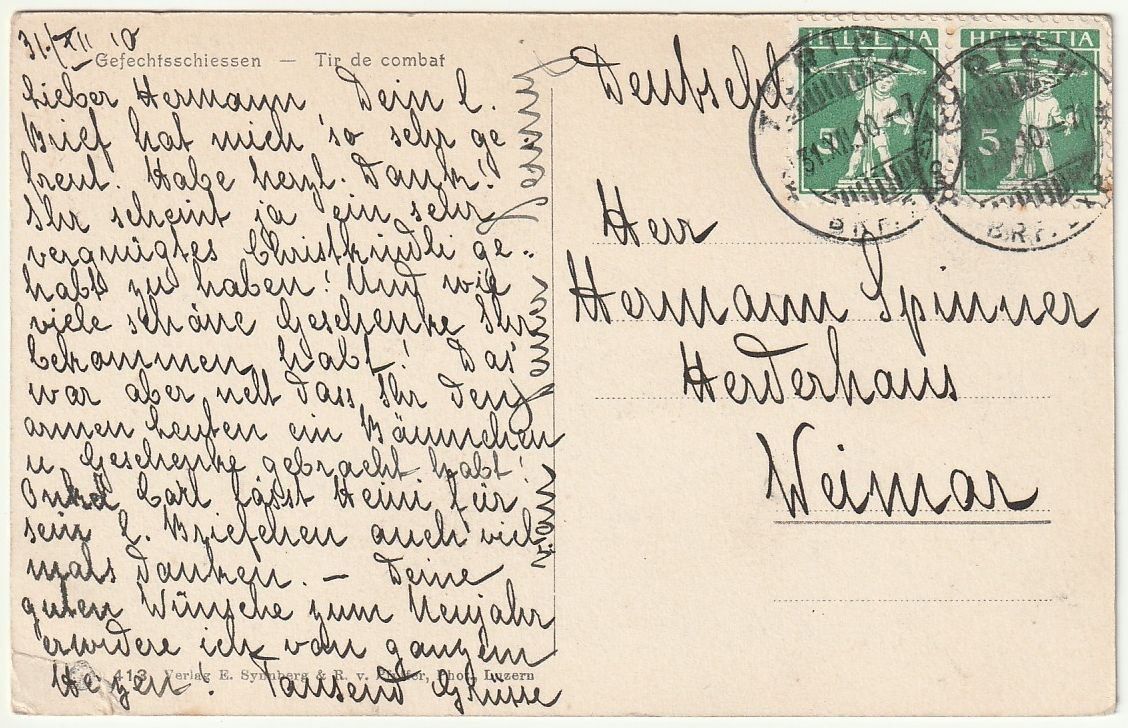 31./XII 10
Gefechtsschiessen — Tir de combat
Lieber Hermann Dein l.
Brief hat mich so sehr ge
freut. Habe herzl. Dank!
Ihr scheint ja ein sehr
vergnügtes Christkindli ge-
habt zu haben! Und wie
viele schöne Geschenke Ihr
bekommen habt! Das
war aber nett dass Ihr den
armen Leuten ein Bäumchen
u. Geschenke gebracht habt!
Onkel Carl lässt Heini für
sein l. Briefchen auch viel
mals danken. — Deine
guten Wünsche zum Neujahr
erwidere ich von ganzem
Herzen! Tausend Grüsse
413 Verlag E. Synnberg & R. v. Pfyffer, Phot., Luzern
Deutschl
HELVETIA
HELVETIA
5
5
ZÜRICH
31.XII.10.–7
BRF. EXP.
ZÜRICH
BRF. EXP.
Herr
Hermann Spinner
Herderhaus
Weimar